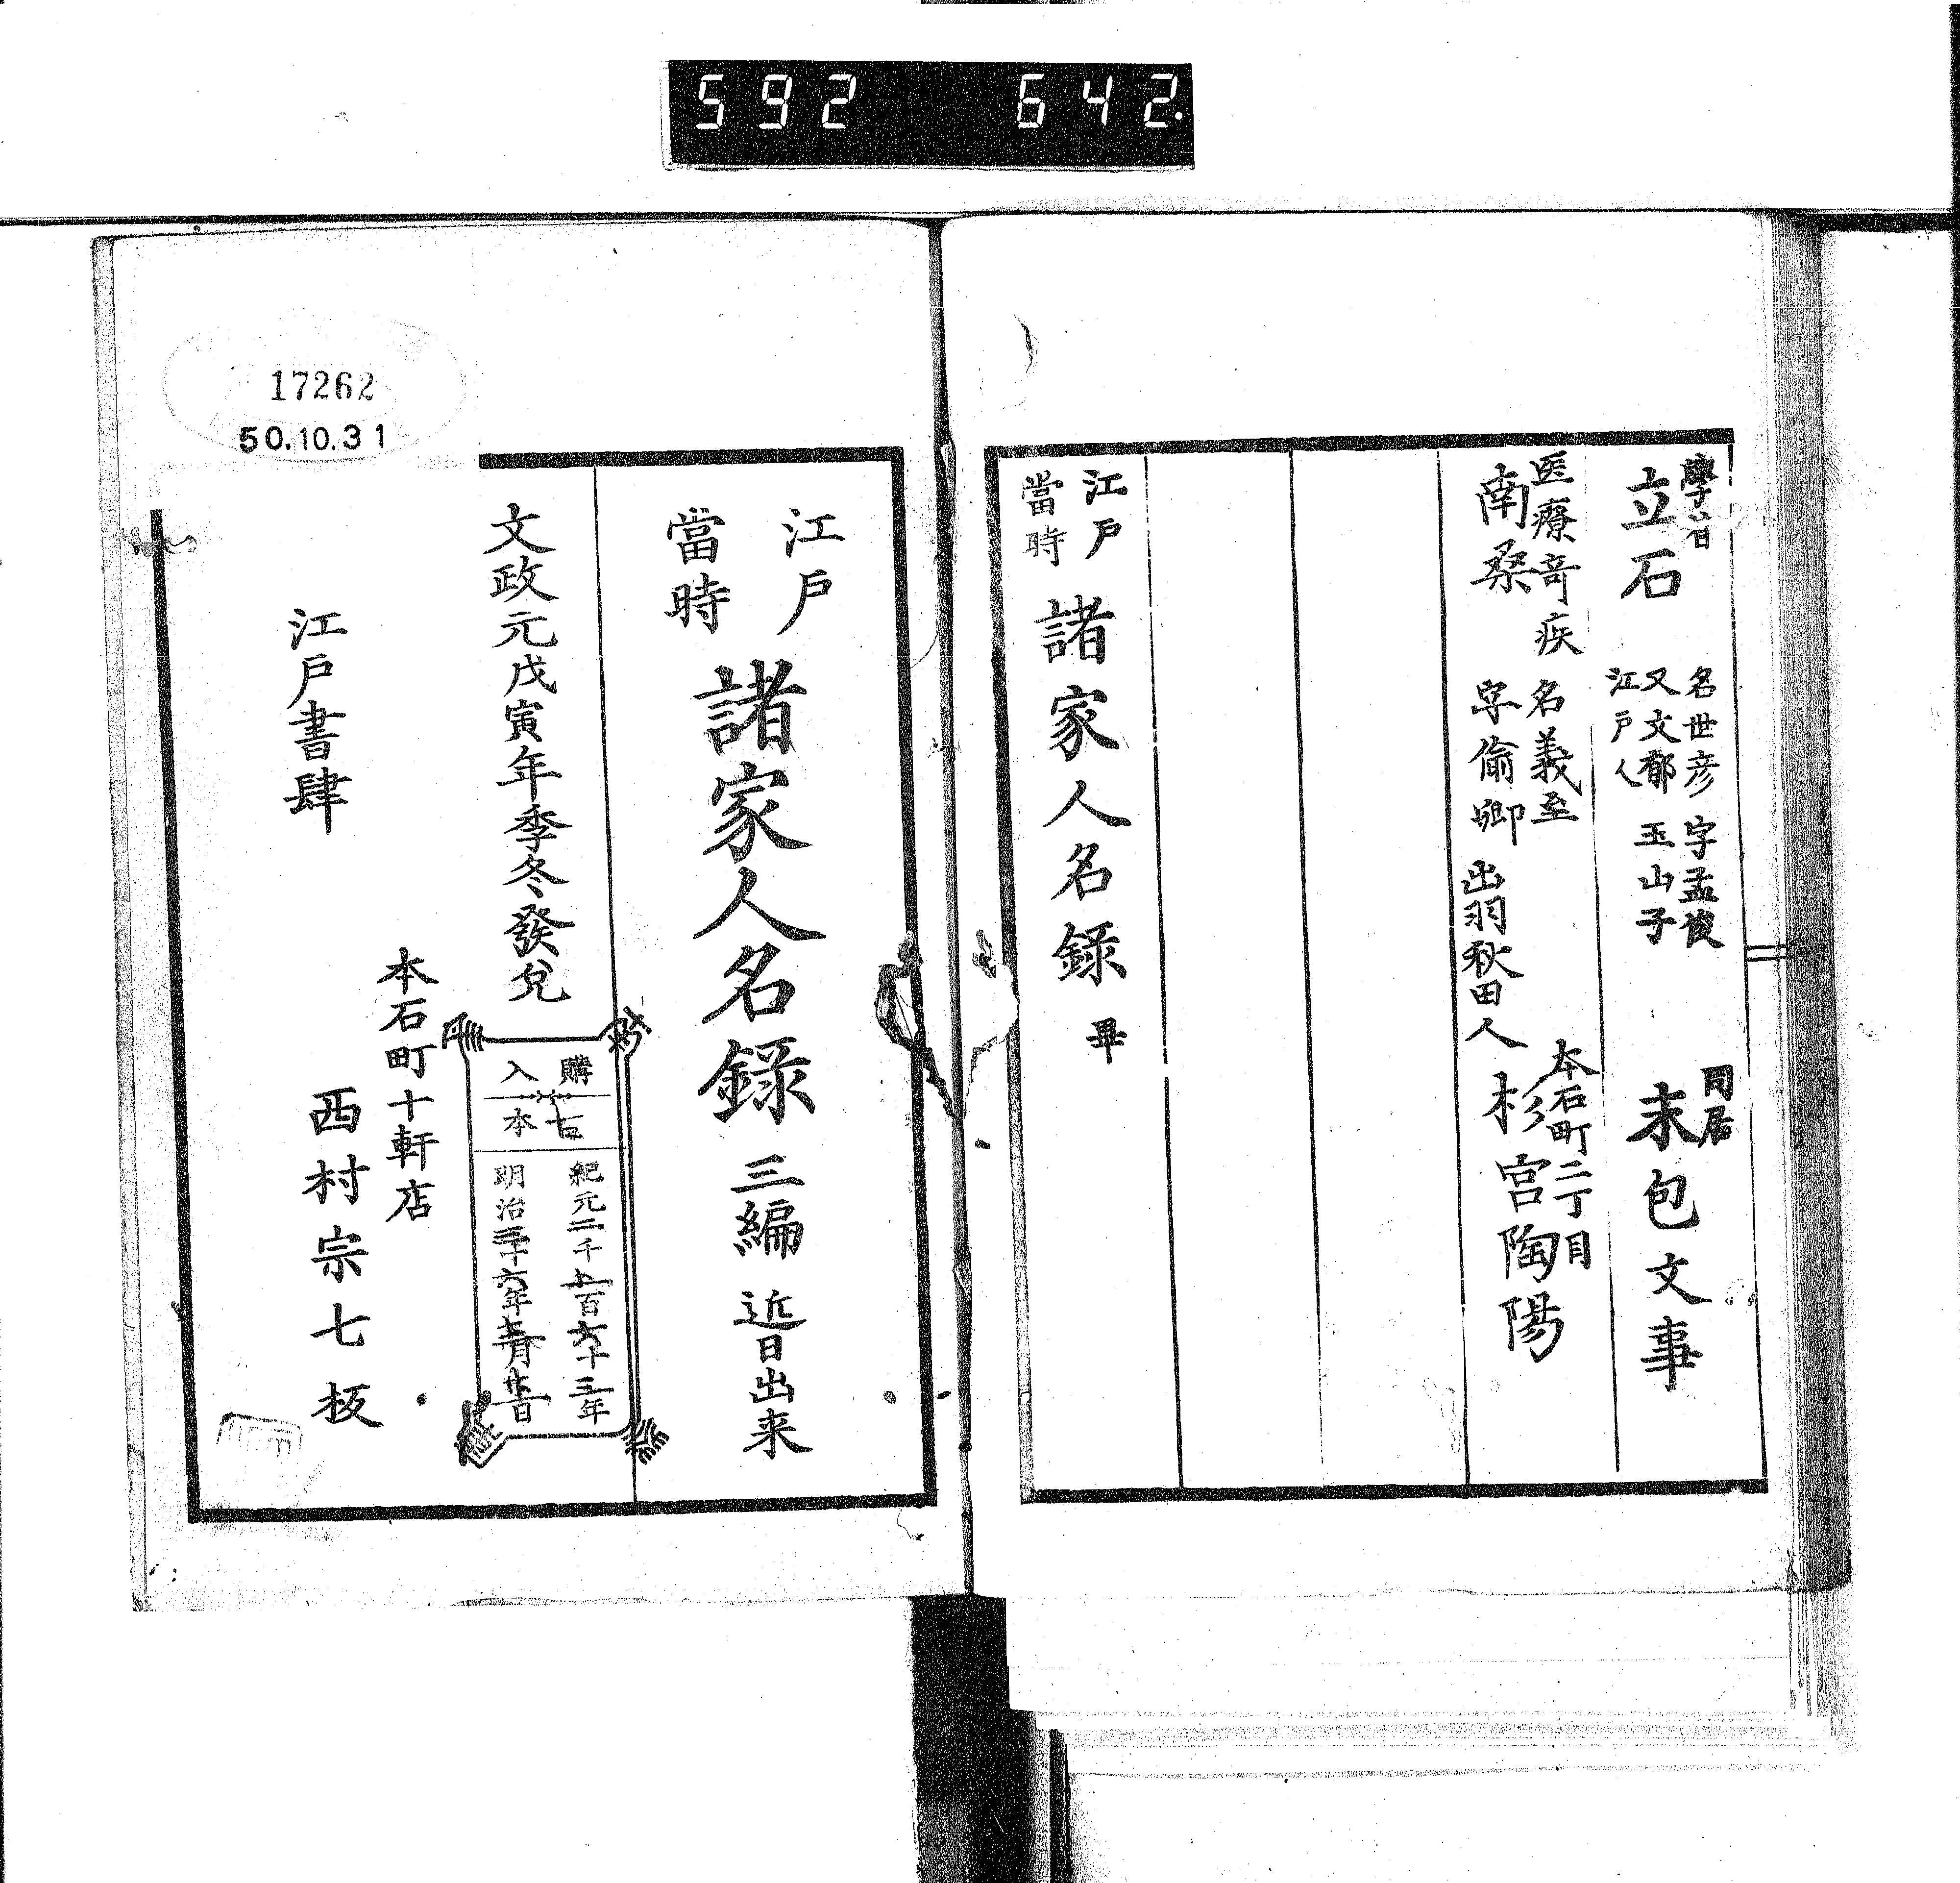 592 642.
學者
立石
名世彦 字孟俊
又文郁 玉山子
江戸人
同居
末包文事
医療奇疾
南桑
名義至
字偷卿
出羽秋田人
本石町二丁目
杉宮陶陽
江戸
當時
諸家人名録 畢
江戸
當時
諸家人名録 三編 近日出来
文政元戊寅年季冬發兌
購入
古本
紀元二千五百六十三年
明治三十六年
江戸書肆
本石町十軒店
西村宗七板
17262
50.10.31